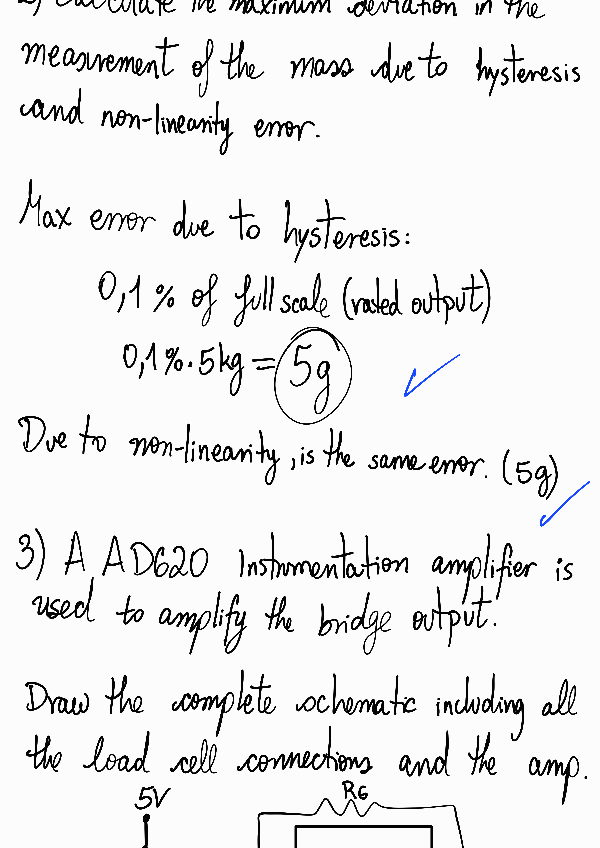 2) Calculate the maximum deviation in the
measurement of the mass due to hysteresis
and non-linearity error.
Max error due to hysteresis:
0,1% of full scale (rated output)
0,1%.5kg = 5g
Due to non-linearity, is the same error. (5g)
3) A AD620 Instrumentation amplifier is
used to amplify the bridge output.
Draw the complete schematic including all
the load cell connections and the amp.
5V RG